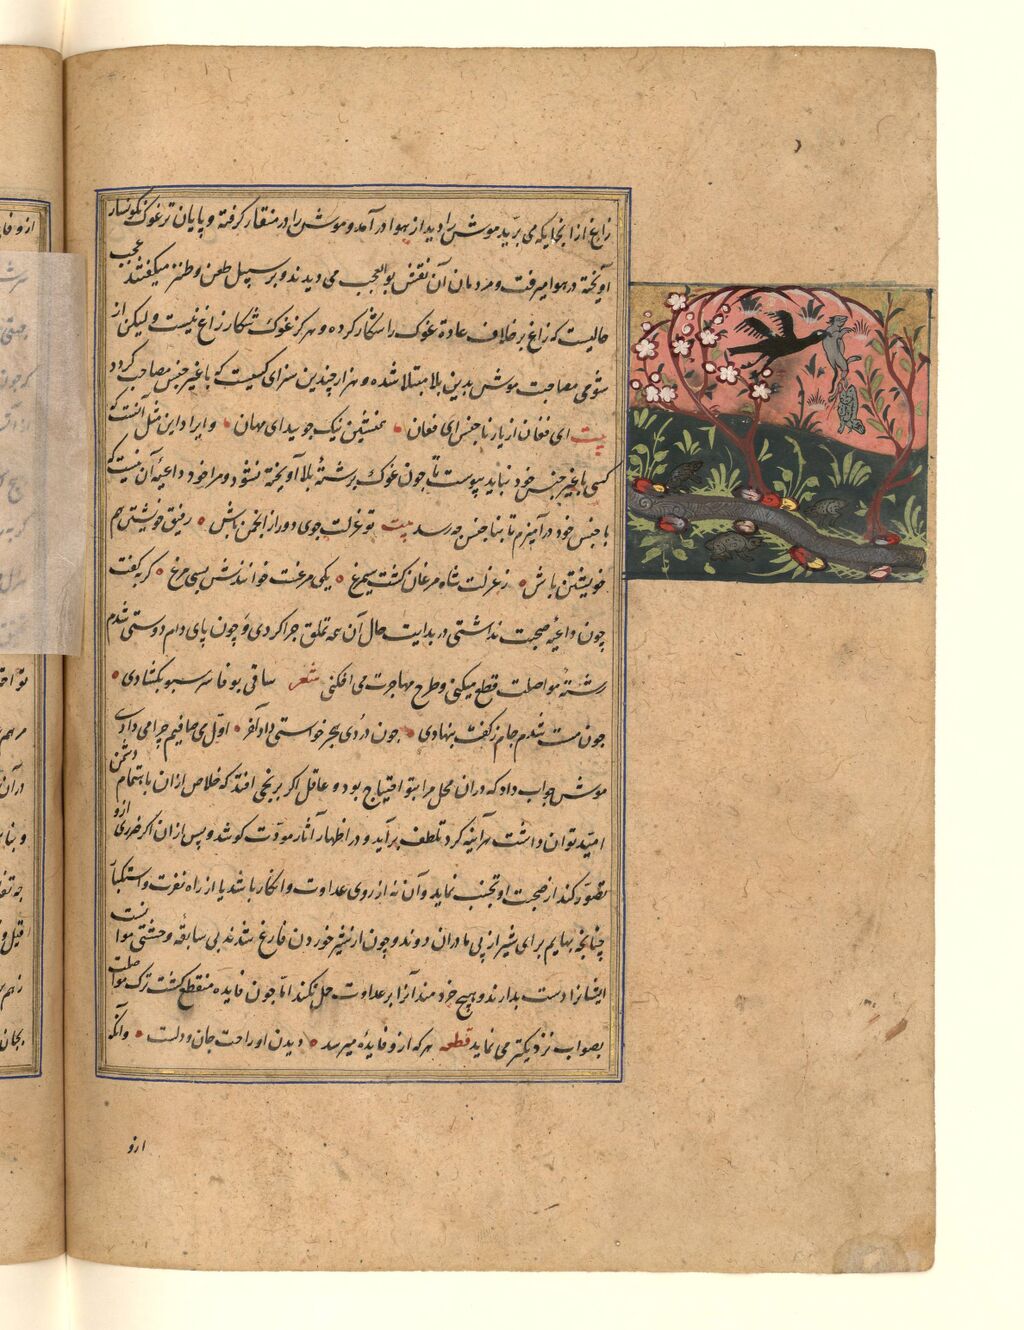 زاغ از انجا یکه می پرید موش را دید از هوا در آمد و موش را در منقار گرفته و پایان تر غوک نکونسار
آویخته در هوا میرفت و مردمان آن نقش بوالعجب می دیدند و بر سبیل طعن و طنز میکفتند عجب
حالیست که زاغ بر خلاف عادة غوک را شکار کرده و هرکز غوک شکار زاغ نیست و لیکن از
شومی مصاحبت موش بدین بلا مبتلا شده و هزار چندین سزای کسیست که با غیر جنس مصاحب کردد
بیت ای فغان از یار ناجنس ای فغان • همنشین نیک جویید ای مهان • و ایراد این مثل آنست که
کسی با غیر جنس خود نباید پیوست تا چون غوک برشتهٔ بلا آویخته نشود و مرا خود داعیهٔ آن نیست که
با جنس خود در آمیزم تا بنا جنس چه رسد بیت تو عزلت جوی دور از انجمن باش • رفیق خویشتن هم
خویشتن باش • ز عزلت شاه مرغان کشت سیمرغ • یکی مرغست خوانندش بسی مرغ • کربه کفت
چون داعیهٔ صحبت نداشتی در بدایت حال آن همه تملق چرا کردی و چون پای دام دوستی شدم
رشتهٔ مواصلت قطع میکنی و طرح مهاجرت می افکنی شعر ساقی بوفا سر سبو بکشادی •
چون مست شدم جام ز کف بنهادی • چون دردی هجر خواستی داد آخر • اول می صافیم چرا می دادی
موش جواب داد که دران محل مرا بتو احتیاج بود و عاقل اکر برنجی افتد که خلاص از ان باهتمام دشمن
امید توان داشت هر آینه کرد تلطف بر آید و در اظهار آثار مودت کوشد و پس از ان اکر ضرری ازو
تصور کند از صحبت او تجنب نماید و آن نه از روی عداوت و انکار باشد یا از راه نفرت و استکبار
چنانچه بهایم برای شیر از پی مادران دوند و چون از شیر خوردن فارغ شدند بی سابقهٔ وحشتی موانست
ایشانرا دست بدارند و هیچ خردمند آنرا بر عداوت حمل نکند اما چون فایده منقطع کشت ترک مواصلت
بصواب نزدیکتر می نماید قطعه هر که ازو فایدهٔ میرسد • دیدن او راحت جان و دلست • وانکه
ازو